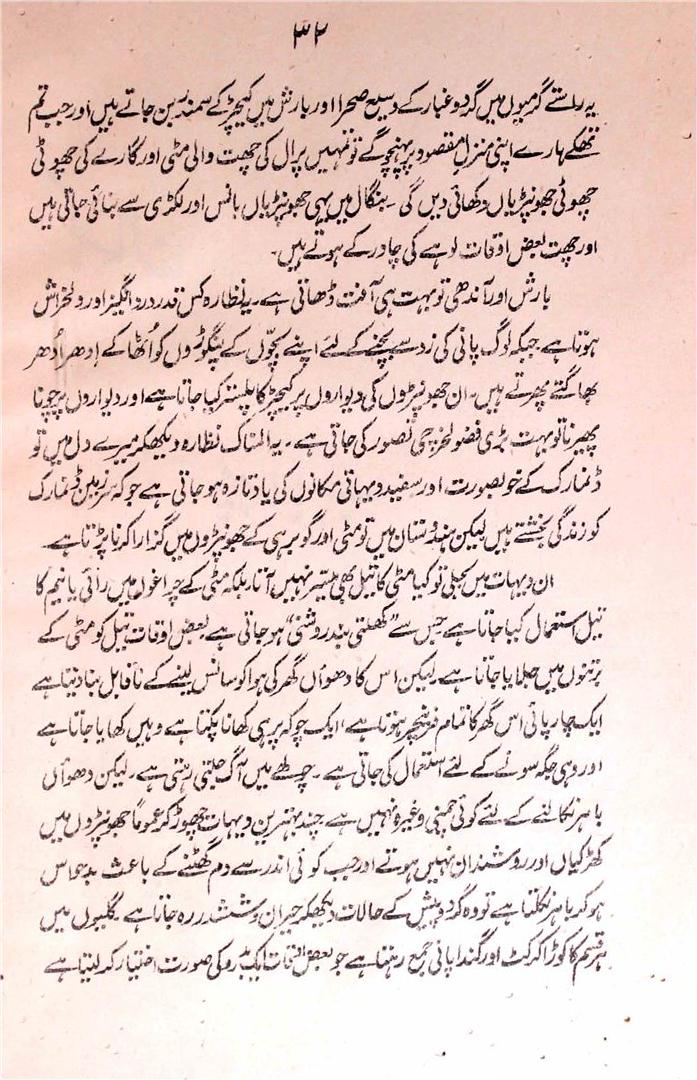 ۳۲
یہ راستے گرمیوں میں گرد و غبار کے وسیع صحرا اور بارش میں کیچڑ کے سمندر بن جاتے ہیں اور جب تم
تھکے ہارے اپنی منزل مقصود پر پہنچو گے تو تمہیں پرال کی چھت والی مٹی اور گارے کی چھوٹی
چھوٹی جھونپڑیاں دکھائی دیں گی۔ بنگال میں یہی جھونپڑیاں بانس اور لکڑی سے بنائی جاتی ہیں
اور چھت بعض اوقات لوہے کی چادر کے ہوتے ہیں۔
بارش اور آندھی تو بہت ہی آفت ڈھاتی ہے۔ یہ نظارہ کس قدر درد انگیز اور دلخراش
ہوتا ہے جبکہ لوگ پانی کی زد سے بچنے کے لئے اپنے بچوں کے پنگوڑوں کو اُٹھا کے اِدھر اُدھر
بھاگتے پھرتے ہیں۔ ان جھونپڑوں کی دیواروں پر کیچڑ کا پلستر کیا جاتا ہے اور دیواروں پر چونا
پھیرنا تو بہت بڑی فضول خرچی تصور کی جاتی ہے۔ یہ المناک نظارہ دیکھکر میرے دل میں تو
ڈنمارک کے خوبصورت اور سفید دیہاتی مکانوں کی یاد تازہ ہو جاتی ہے جو کہ سرزمین ڈنمارک
کو زندگی بخشتے ہیں لیکن ہندوستان میں تو مٹی اور گوبر ہی کے جھونپڑوں میں گزارا کرنا پڑتا ہے۔
ان دیہات میں بجلی تو کیا مٹی کا تیل بھی میسر نہیں آتا بلکہ مٹی کے چراغوں میں رائی یا نیم کا
تیل استعمال کیا جاتا ہے جس سے "کھلتی بند روشنی" ہو جاتی ہے بعض اوقات تیل کو مٹی کے
برتنوں میں جلایا جاتا ہے۔ لیکن اس کا دھوآں گھر کی ہوا کو سانس لینے کے ناقابل بنا دیتا ہے
ایک چارپائی اس گھر کا تمام فرنیچر ہوتا ہے، ایک چوکہ پر ہی کھانا پکتا ہے وہیں کھایا جاتا ہے
اور وہی جگہ سونے کے لئے استعمال کی جاتی ہے۔ چولھے میں آگ جلتی رہتی ہے۔ لیکن دھوآں
باہر نکالنے کے لئے کوئی چمنی وغیرہ نہیں ہے چند بہترین دیہات چھوڑ کر عموماً جھونپڑوں میں
کھڑکیاں اور روشندان نہیں ہوتے اور جب کوئی اندر سے دم گھٹنے کے باعث بدحواس
ہو کر باہر نکلتا ہے تو وہ گرد و پیش کے حالات دیکھکر حیران و ششدر رہ جاتا ہے۔ گلیوں میں
ہر قسم کا کوڑا کرکٹ اور گندا پانی جمع رہتا ہے جو بعض اوقات ایک بدرو کی صورت اختیار کر لیتا ہے